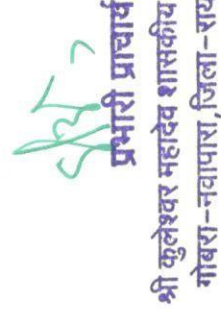 प्रभारी प्राचार्य
श्री कुलेश्वर महादेव शासकीय
गोबरा-नवापारा, जिला-राय